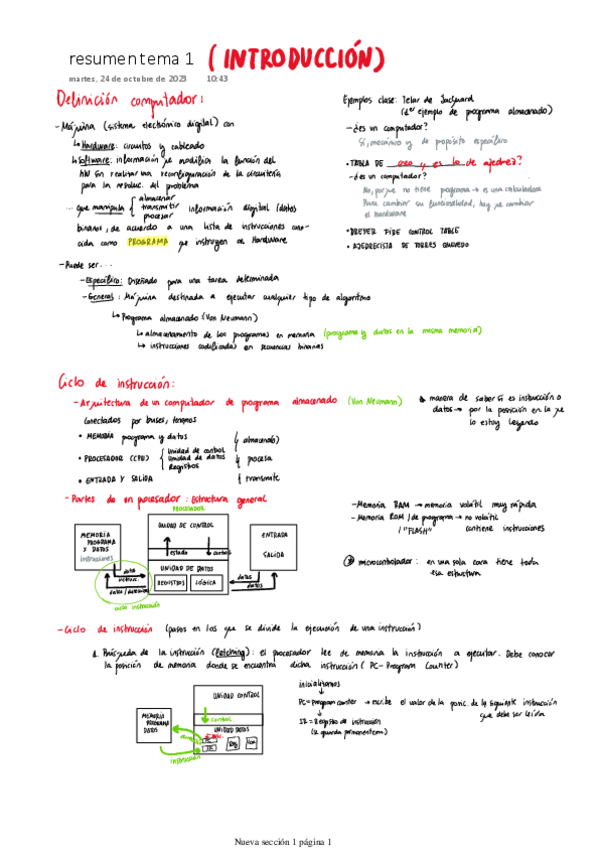 resumen tema 1 (INTRODUCCIÓN)
martes, 24 de octubre de 2023 10:43
Definición computador:
- Máquina (sistema electrónico digital) con
↳ Hardware: circuitos y cableado
↳ Software: información que modifica la función del
HW sin realizar una reconfiguración de la circuitería
para la resoluc. del problema
- que manipula { almacenar
transmitir
procesar
información digital (datos
binarios, de acuerdo a una lista de instrucciones cono-
cida como PROGRAMA que instruyen al Hardware
- Puede ser...
- Específico: Diseñado para una tarea determinada
- General: Máquina destinada a ejecutar cualquier tipo de algoritmo
↳ Programa almacenado (Von Neumann)
↳ almacenamiento de los programas en memoria (programa y datos en la misma memoria)
↳ instrucciones codificadas en secuencias binarias
Ejemplos clase: Telar de Jacquard
(1er ejemplo de programa almacenado)
- ¿es un computador?
Sí, mecánico y de propósito específico
• TABLA DE creo q es lo de ajedrez?
- ¿es un computador?
No, porque no tiene programa → es una calculadora
Para cambiar su funcionalidad, hay que cambiar
el hardware
• DREYER FIRE CONTROL TABLE
• AJEDRECISTA DE TORRES QUEVEDO
Ciclo de instrucción:
- Arquitectura de un computador de programa almacenado (Von Neumann)
Conectados por buses, tenemos
• MEMORIA programa y datos (almacenado)
• PROCESADOR (CPU) { Unidad de control
Unidad de datos
Registros
procesa
• ENTRADA Y SALIDA
transmite
manera de saber si es instrucción o
datos → por la posición en la que
lo estoy leyendo
- Partes de un procesador: Estructura general
PROCESADOR
MEMORIA
PROGRAMA
Y DATOS
instrucciones
UNIDAD DE CONTROL
estado
control
UNIDAD DE DATOS
REGISTROS
LÓGICA
ENTRADA
SALIDA
datos
datos
datos
ciclo instrucción
- Memoria RAM → memoria volátil muy rápida
- Memoria ROM / de programa → no volátil
/ "FLASH" contiene instrucciones
microcontrolador: en una sola cara tiene toda
esa estructura
- Ciclo de instrucción (pasos en los que se divide la ejecución de una instrucción)
1. Búsqueda de la instrucción (Fetching): el procesador lee de memoria la instrucción a ejecutar. Debe conocer
la posición de memoria donde se encuentra dicha instrucción (PC - Program Counter)
MEMORIA
PROGRAMA
DATOS
UNIDAD CONTROL
control
UNIDAD DATOS
instrucción
inicializamos
PC = Program counter → escribe el valor de la posic. de la siguiente instrucción
que debe ser leída
IR = Registro de instrucción
Nueva sección 1 página 1